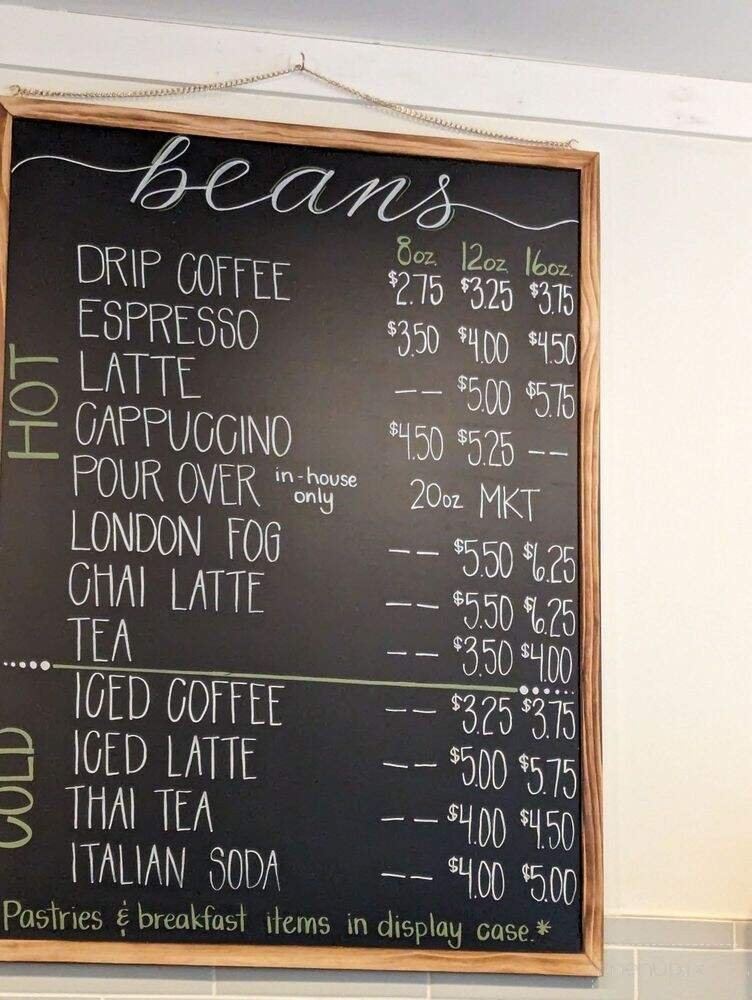 beans
8oz 12oz 16oz
HOT
DRIP COFFEE $2.75 $3.25 $3.75
ESPRESSO $3.50 $4.00 $4.50
LATTE -- $5.00 $5.75
CAPPUCCINO $4.50 $5.25 --
POUR OVER in-house only 20oz MKT
LONDON FOG -- $5.50 $6.25
CHAI LATTE -- $5.50 $6.25
TEA -- $3.50 $4.00
COLD
ICED COFFEE -- $3.25 $3.75
ICED LATTE -- $5.00 $5.75
THAI TEA -- $4.00 $4.50
ITALIAN SODA -- $4.00 $5.00
Pastries & breakfast items in display case.*